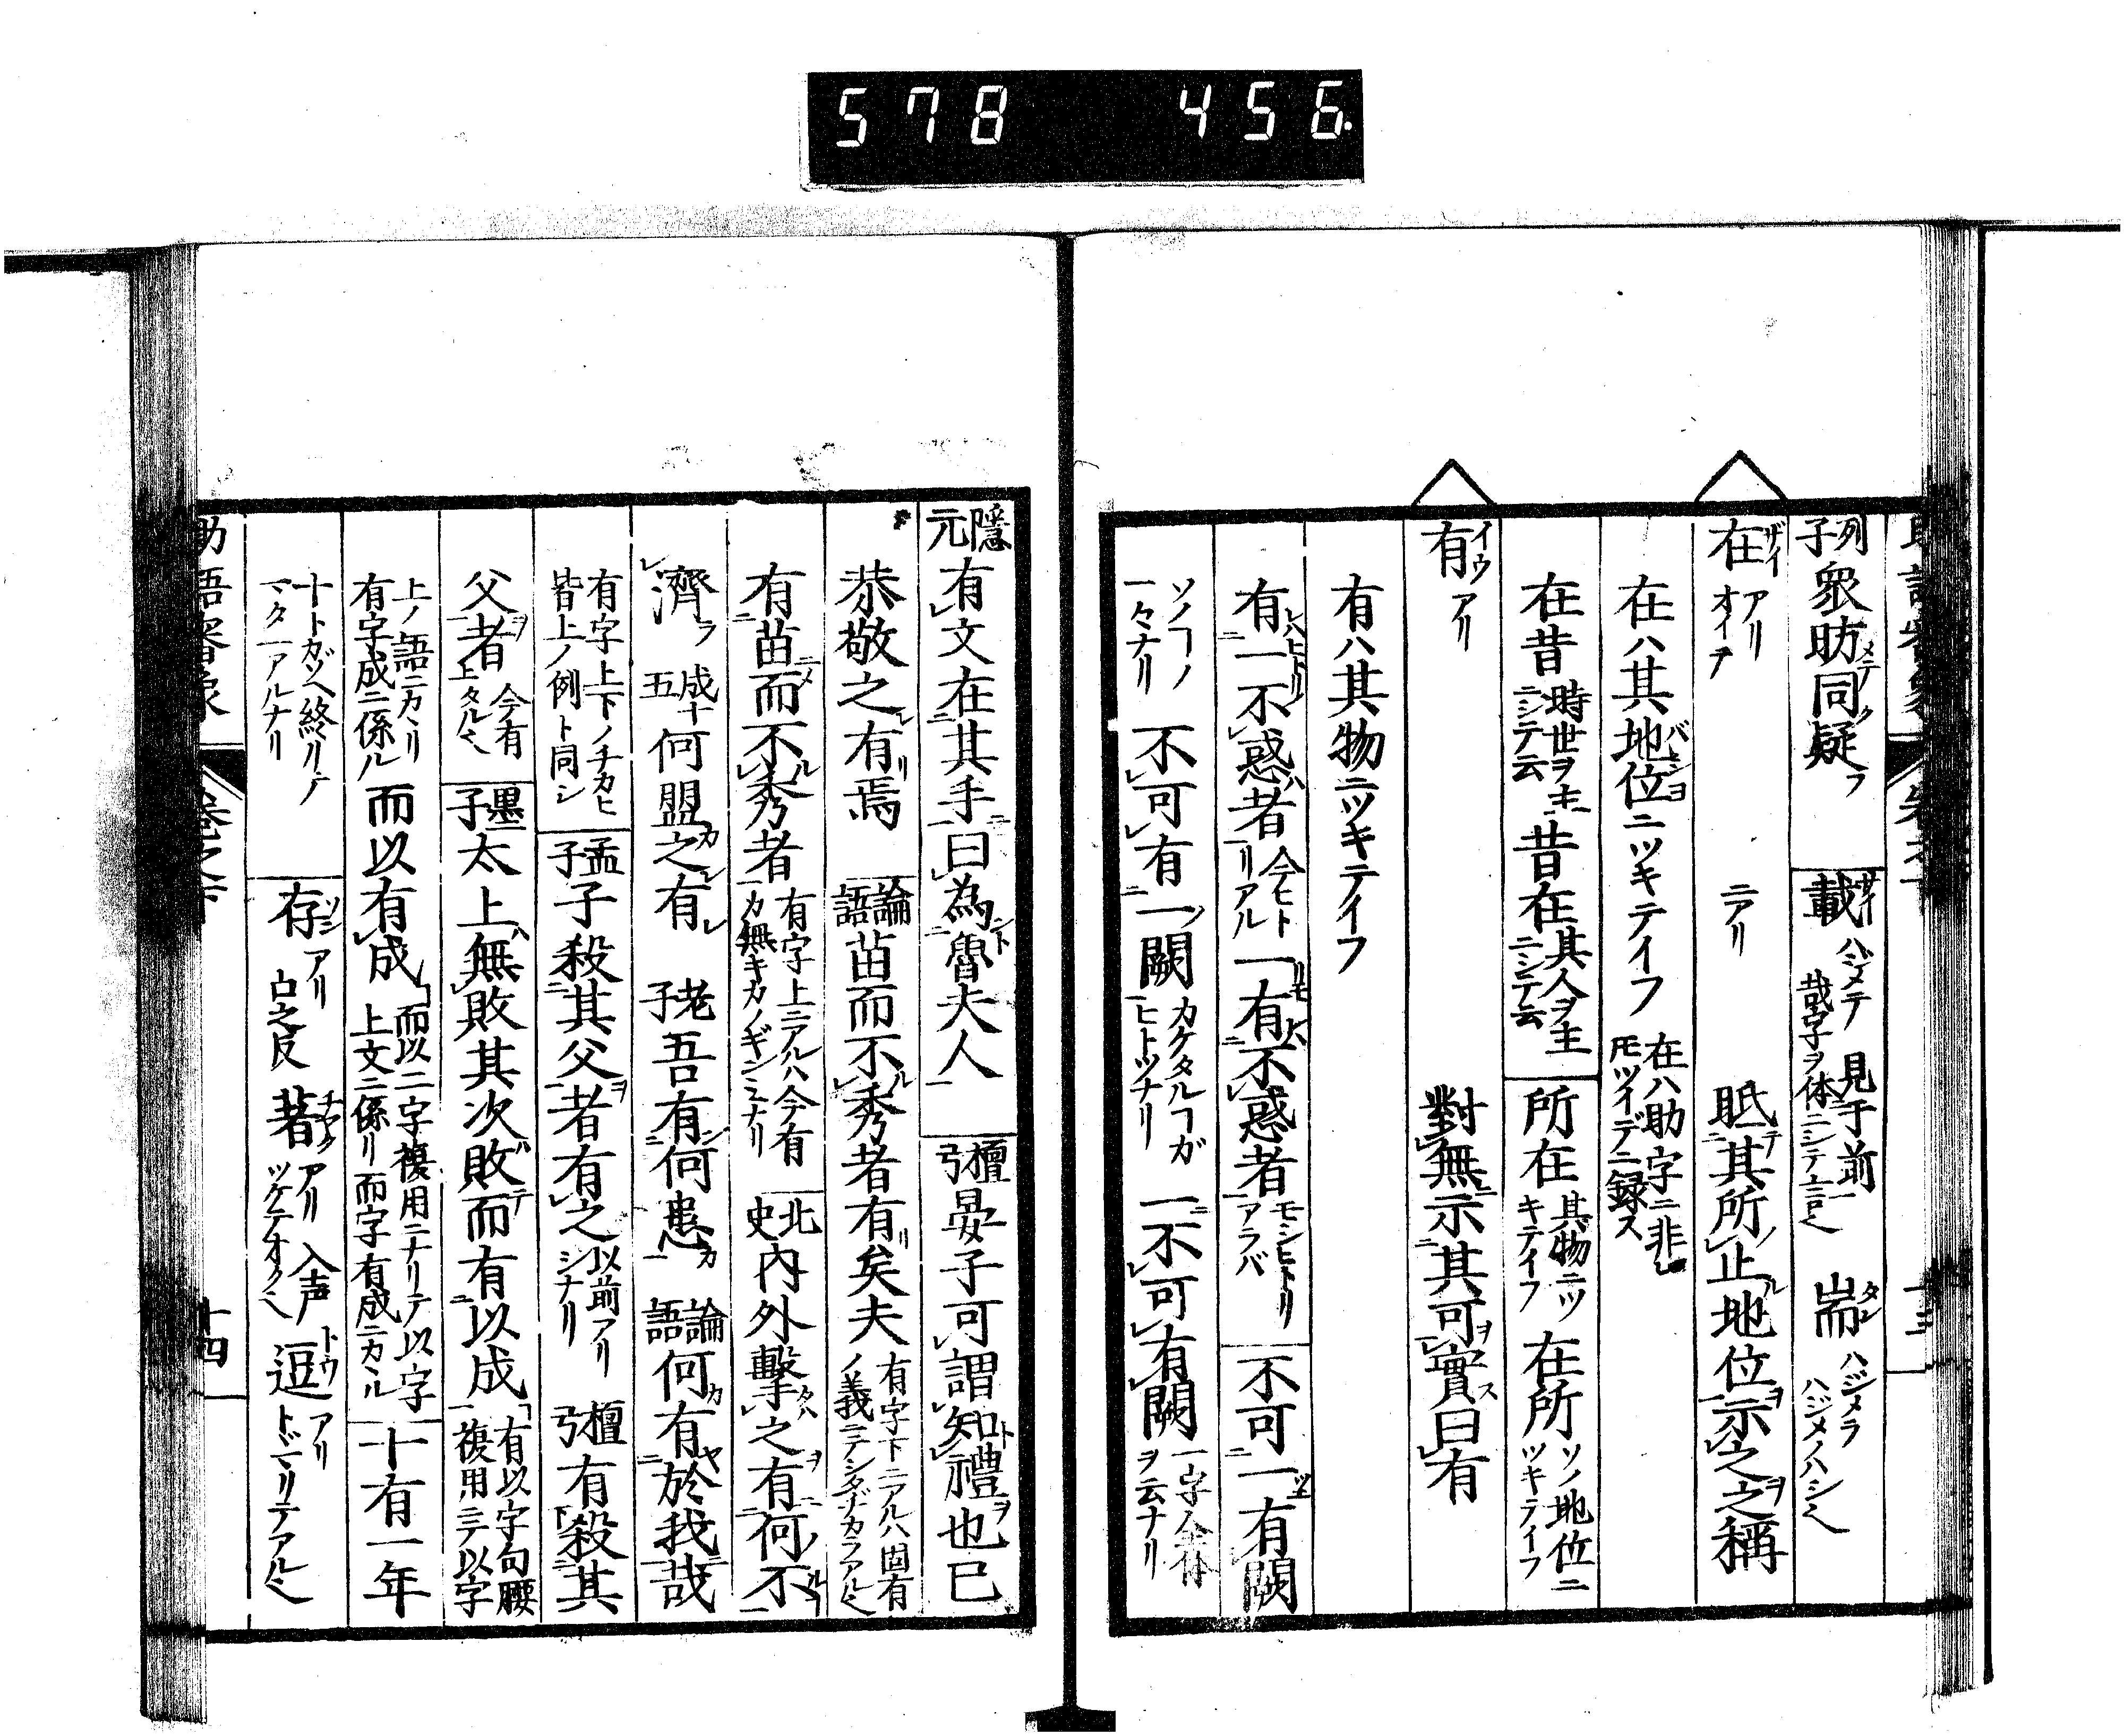 578 456.
列子 衆昉同疑フ 載サイ ハジメテ 見于前 哉字ヲ体ニシテ言ヘ 耑タン ハジメラ ハジメノハシヘ
在ザイ アリ オイテ ニアリ 眂其所止地位示之之稱
在ハ其地位ニツキテイフ 在ハ助字ニ非レ𪜈ツイデニ録ス
在昔 時世ヲ主ニシテ云 昔在 其人ヲ主ニシテ云 所在 其物ニツキテイフ 在所 ソノ地位ニツキテイフ
有イウ アリ 對無示其可實曰有
有ハ其物ニツキテイフ
有一不惑者 今ヒトリアル 一有不惑者 モシヒトリアラバ 不可一有闕
ソノヿノ一々ナリ 不可有一闕 カケタルヿガヒトツナリ 一不可有闕 一字ノ全体ヲ云ナリ
隱元 有文在其手曰為魯夫人 檀弓 晏子可謂知禮也已
恭敬之有焉 論語 苗而不秀者有矣夫 有字下ニアルハ固有ノ義ニテシタヂカラアルヘ
有苗而不秀者 有字上ニアルハ今有カ無キカノギンミナリ 北史 內外擊之有何不
濟ラ 成十五 何盟之有 老子 吾有何患 論語 何有於我哉
有字上下ノチカヒ皆上ノ例ト同シ 孟子 子殺其父者有之 以前アリシナリ 檀弓 有殺其
父者 今有上タルヘ 墨子 太上無敗其次敗而有以成 有以字句腰複用ニテ以字
上ノ語ニカヽリ有字成ニ係ル 而以有成 而以二字複用ニナリテ以字上文ニ係リ而字有成ニカヽル 十有一年
十トカゾヘ終リテマタ一アルナリ 存ソン アリ 亡之反 著チヤク アリ 入声 ツケテオクヘ 逗トウ アリ トドマリテアルヘ
助語審象 卷之下 十四